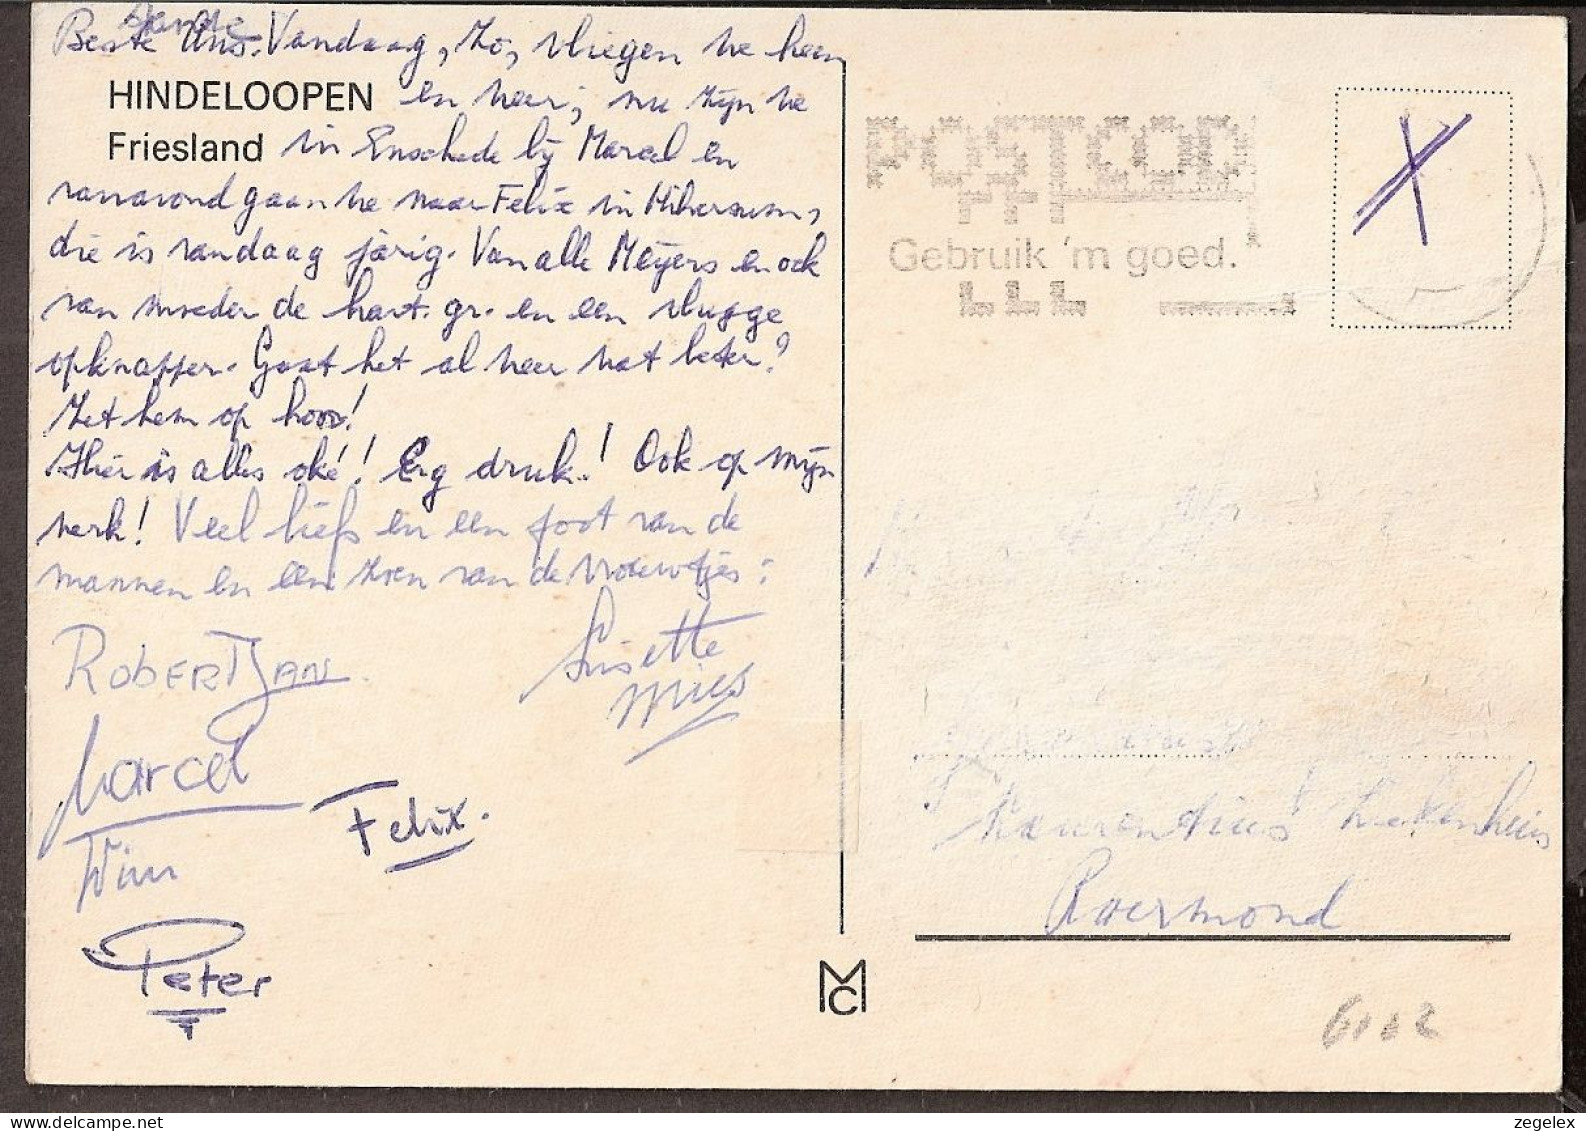 Beste Ans. Vandaag, zo, vliegen we heen
HINDELOOPEN en weer; nu zijn we
Friesland in Enschede bij Marcel en
vanavond gaan we naar Felix in Hilversum,
die is vandaag jarig. Van alle Meijers en ook
van moeder de hart. gr. en een vlugge
opknapper. Gaat het al weer wat beter?
Zet hem op hoor!
Hier is alles oké! Erg druk! Ook op mijn
werk! Veel liefs en een poot van de
mannen en een zoen van de vrouwtjes:
ROBERTJAN
Lisette
Mies
Marcel
Felix.
Wim
Peter
POSTCODE
Gebruik 'm goed.
X
Laurentius Ziekenhuis
Roermond
MC
zegelex